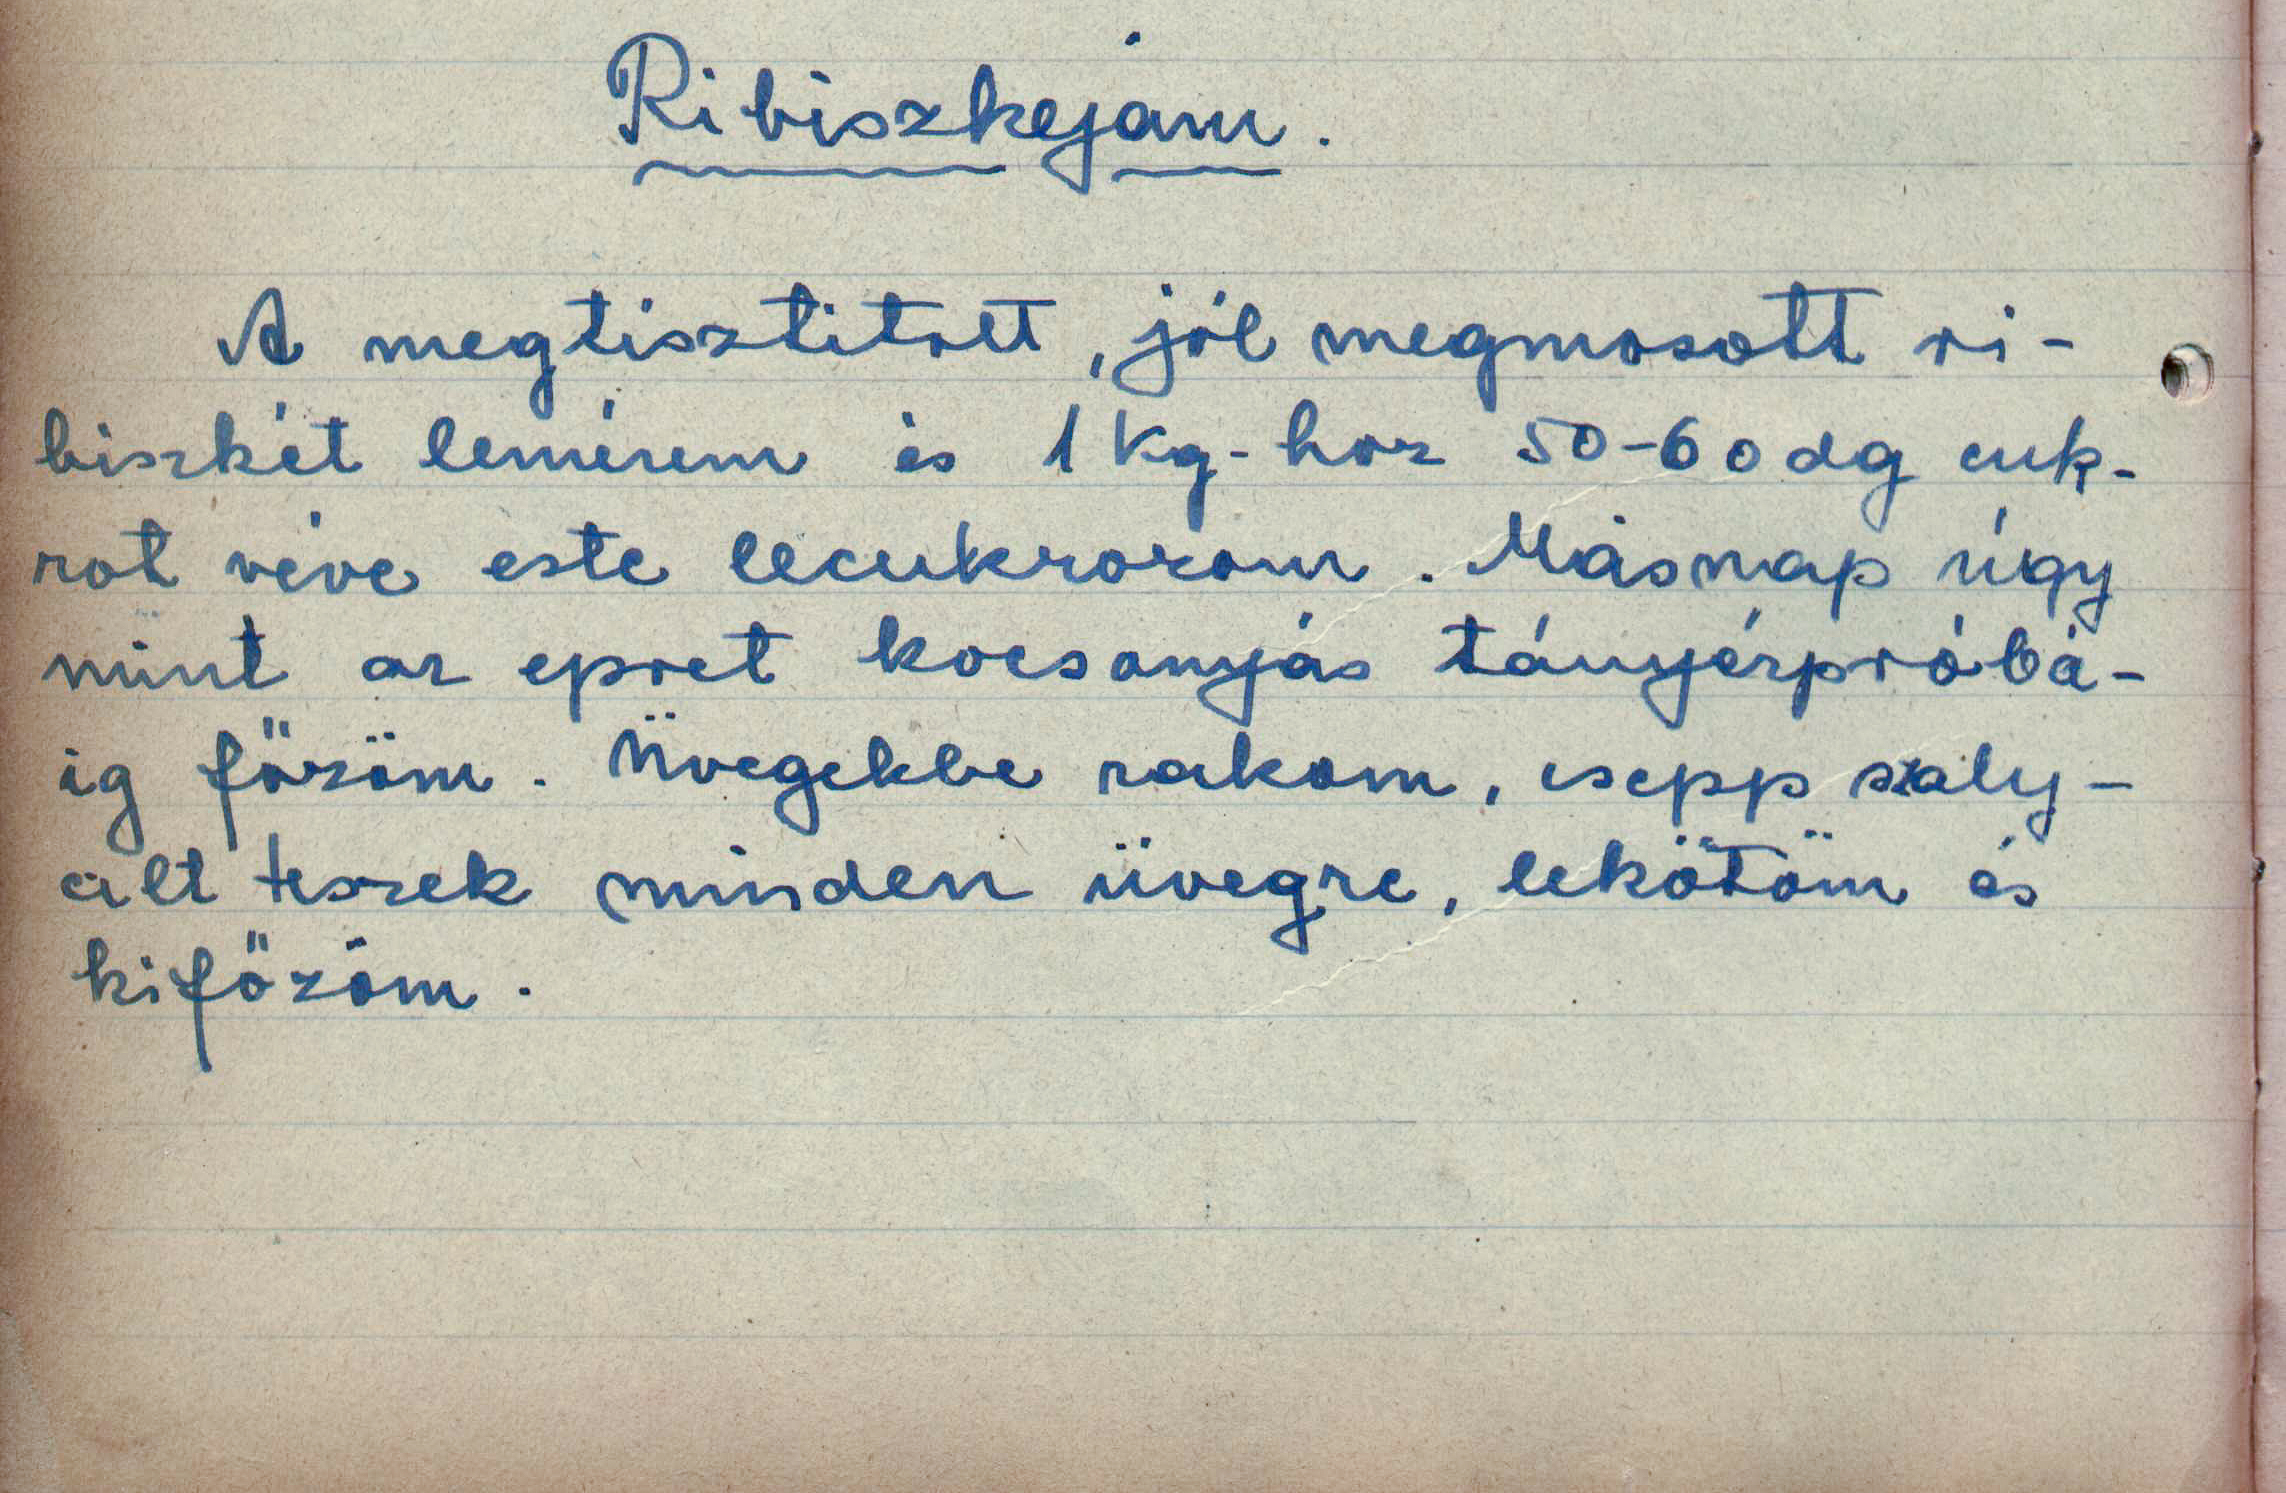 Ribiszkejam.
A megtisztitott, jól megmosott ri-
biszkét lemérem és 1 kg-hoz 50-60 dg cuk-
rot véve este lecukrozom. Másnap úgy
mint az epret kocsonyás tányérpróbá-
ig főzöm. Üvegekbe rakom, csepp szaly-
cilt teszek minden üvegre, lekötöm és
kifőzöm.